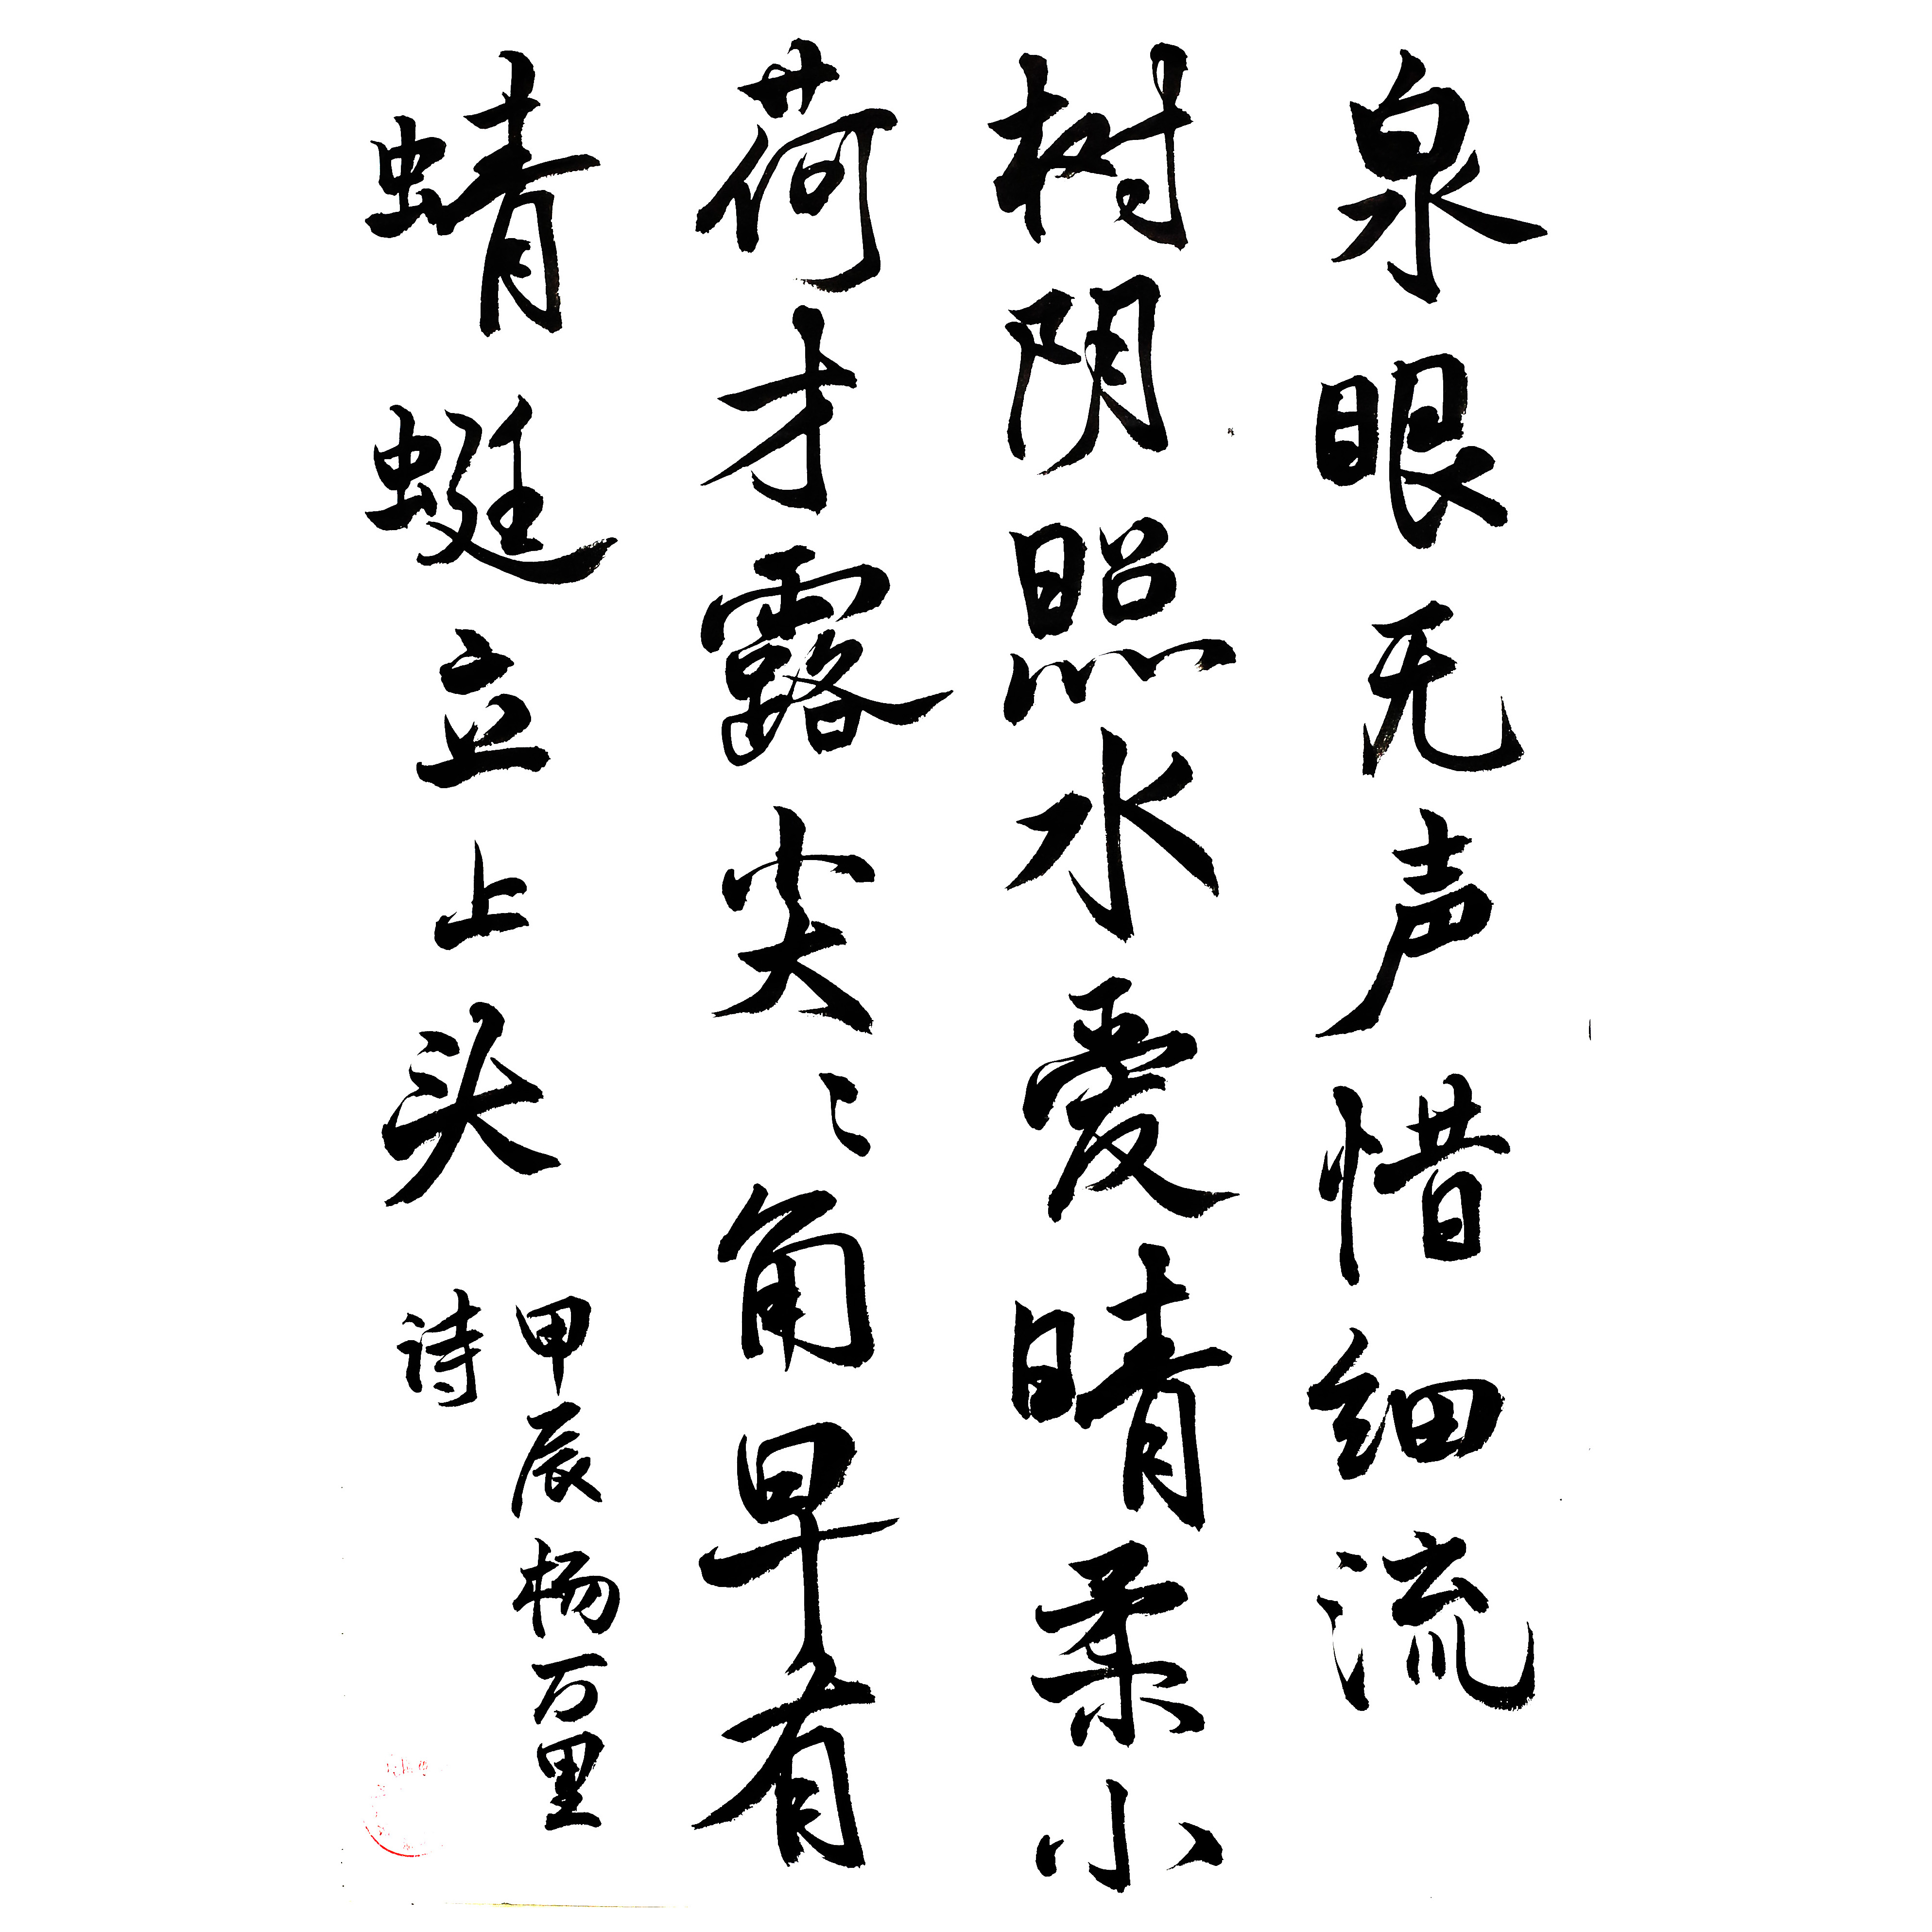 泉眼无声惜细流
树阴照水爱晴柔小
荷才露尖〻角早有
蜻蜓立上头
甲辰杨万里
诗